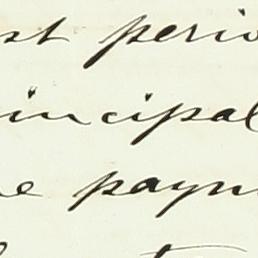 st perio
incipal
e paym